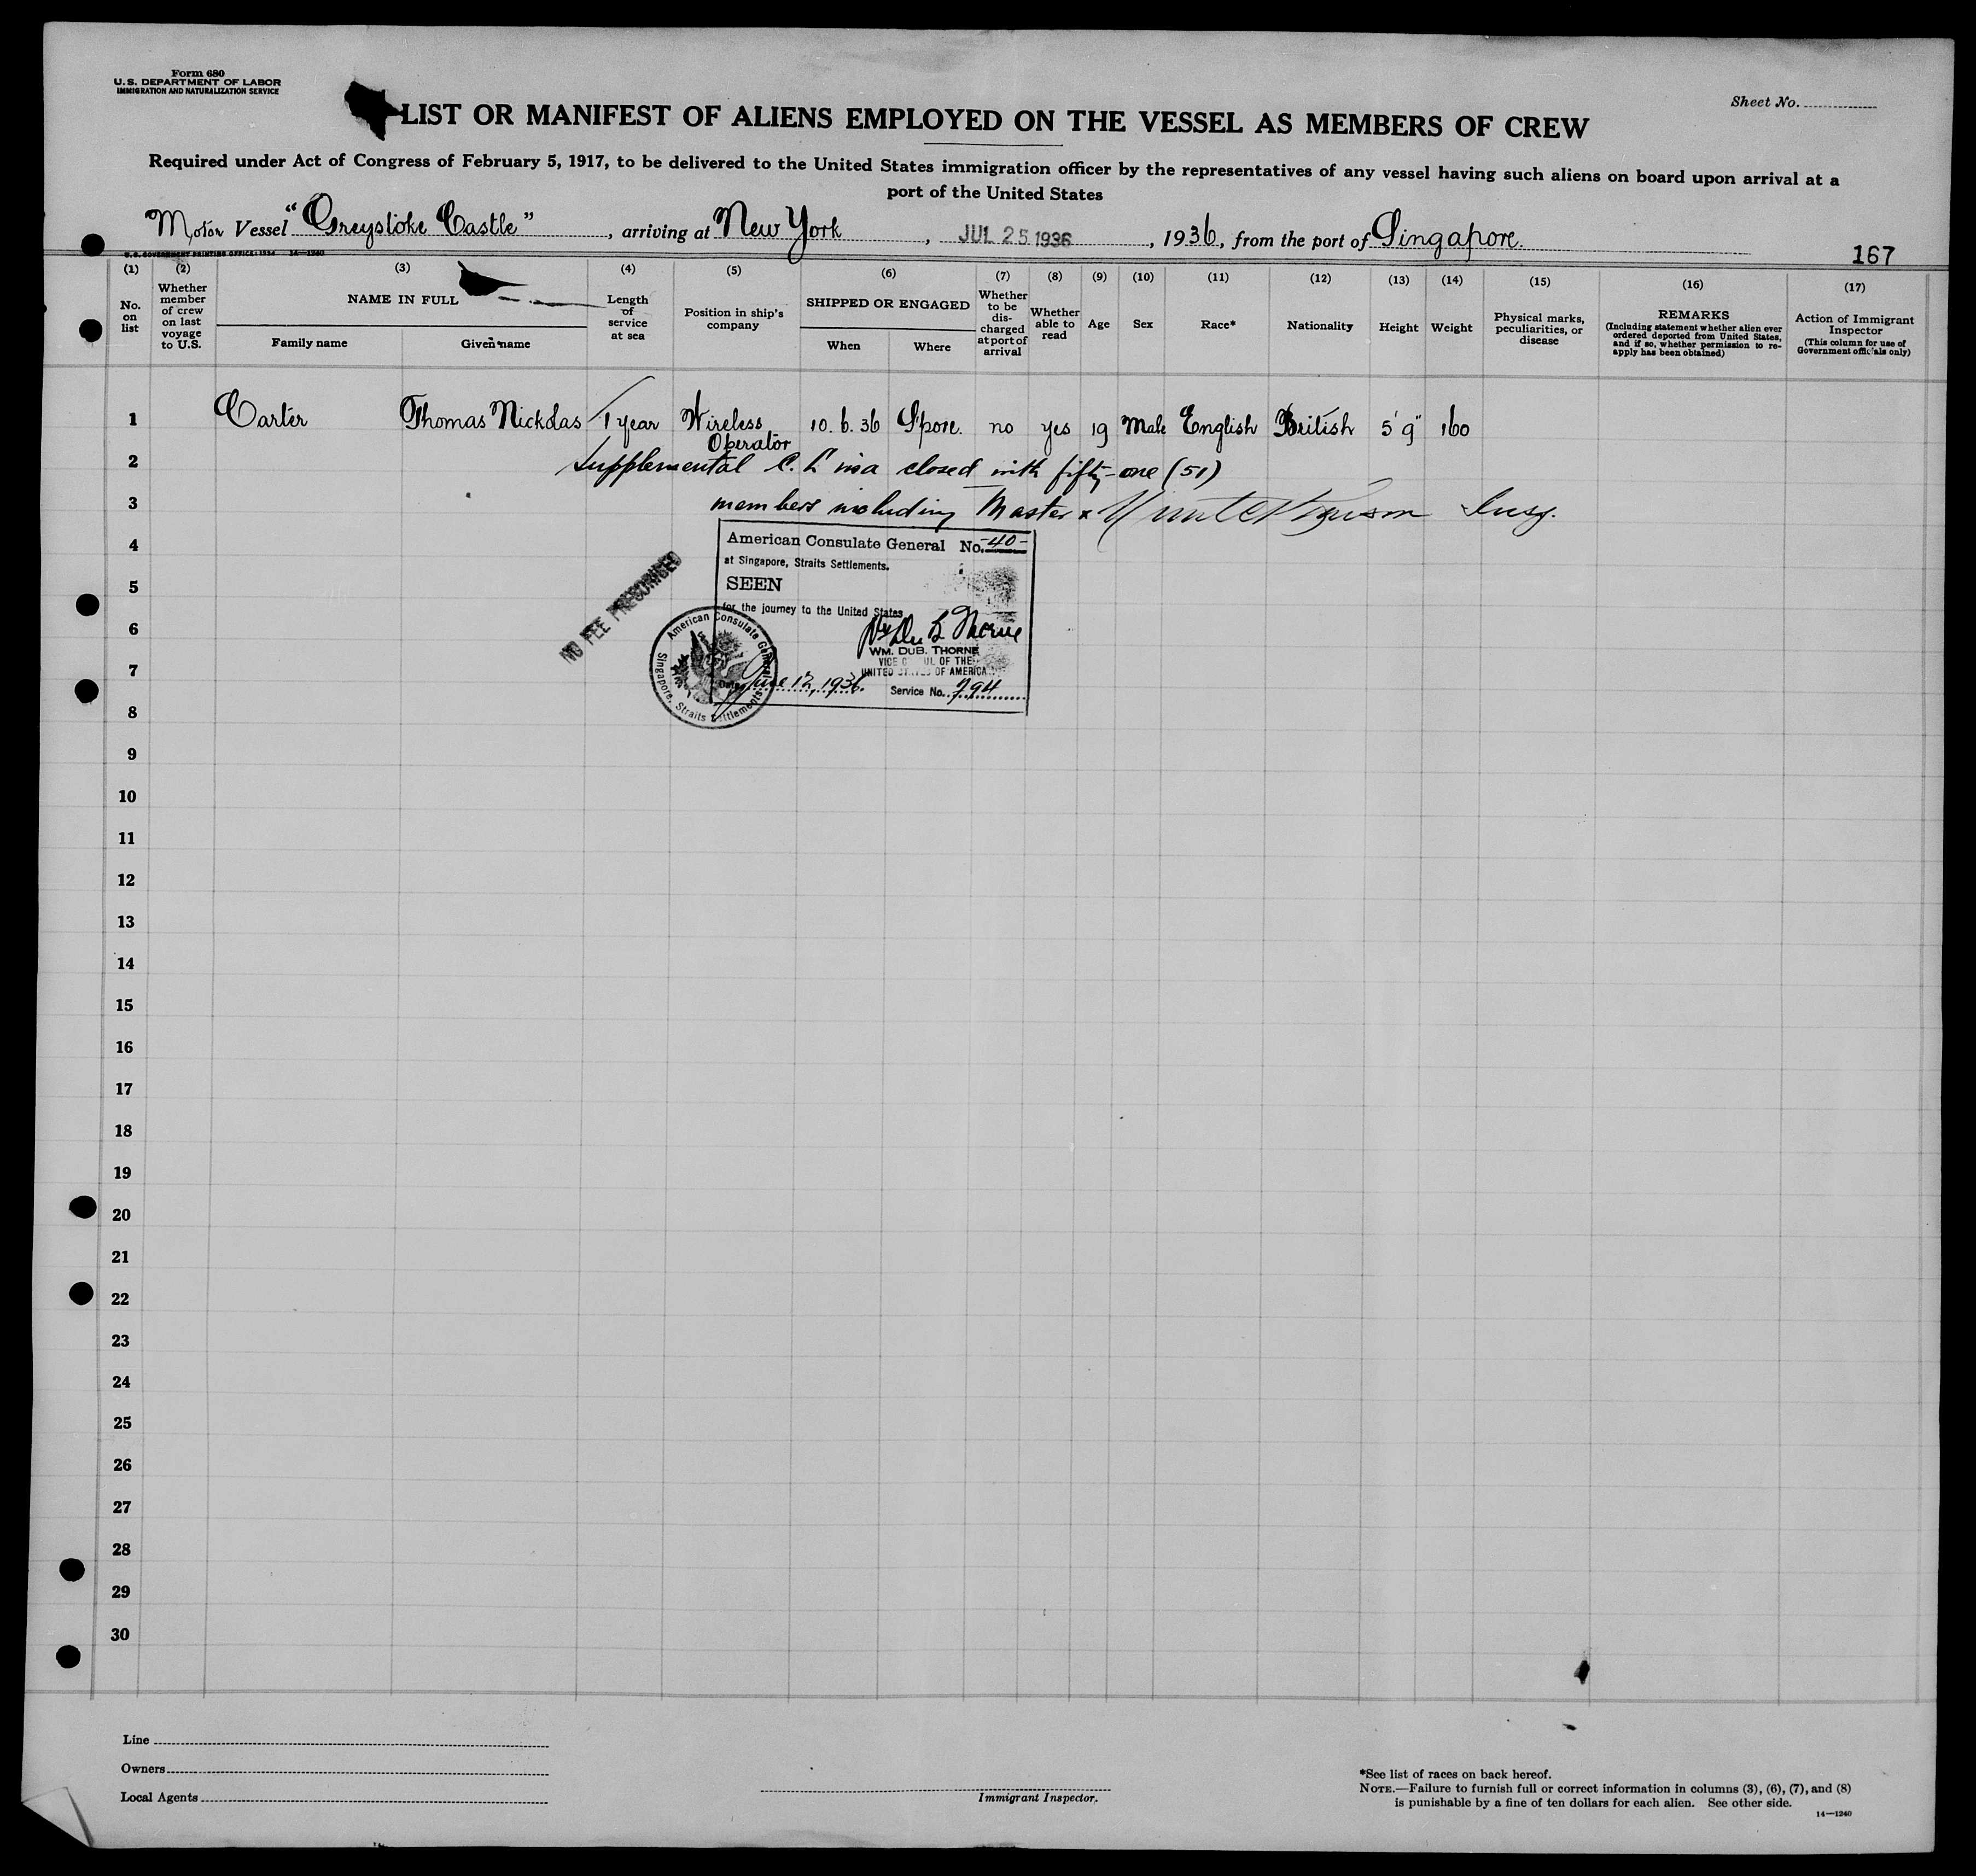 Form 680
U. S. DEPARTMENT OF LABOR
IMMIGRATION AND NATURALIZATION SERVICE
Sheet No.
LIST OR MANIFEST OF ALIENS EMPLOYED ON THE VESSEL AS MEMBERS OF CREW
Required under Act of Congress of February 5, 1917, to be delivered to the United States immigration officer by the representatives of any vessel having such aliens on board upon arrival at a
port of the United States
Motor Vessel "Greystoke Castle", arriving at New York, JUL 25 1936, 1936, from the port of Singapore.
167
U. S. GOVERNMENT PRINTING OFFICE: 1934 14—1240
(1) (2) (3) (4) (5) (6) (7) (8) (9) (10) (11) (12) (13) (14) (15) (16) (17)
No. on list
Whether member of crew on last voyage to U.S.
NAME IN FULL
Family name
Given name
Length of service at sea
Position in ship's company
SHIPPED OR ENGAGED
When
Where
Whether to be discharged at port of arrival
Whether able to read
Age
Sex
Race*
Nationality
Height
Weight
Physical marks, peculiarities, or disease
REMARKS
(Including statement whether alien ever ordered deported from United States, and if so, whether permission to reapply has been obtained)
Action of Immigrant Inspector
(This column for use of Government officials only)
1 Carter Thomas Nickolas 1 year Wireless Operator 10. 6. 36 S'pore. no yes 19 Male English British 5' 9" 160
2 Supplemental C. L visa closed with fifty-one (51)
3 members including Master Insp.
4
American Consulate General No. -40-
at Singapore, Straits Settlements.
5
SEEN
NO FEE PRESCRIBED
for the journey to the United States
6
WM. DUB. THORNE
VICE CONSUL OF THE
UNITED STATES OF AMERICA
7
Date June 12, 1936. Service No. 794
American Consulate General
Singapore, Straits Settlements
8
9
10
11
12
13
14
15
16
17
18
19
20
21
22
23
24
25
26
27
28
29
30
Line
Owners
Local Agents
Immigrant Inspector.
*See list of races on back hereof.
NOTE.—Failure to furnish full or correct information in columns (3), (6), (7), and (8)
is punishable by a fine of ten dollars for each alien. See other side.
14—1240